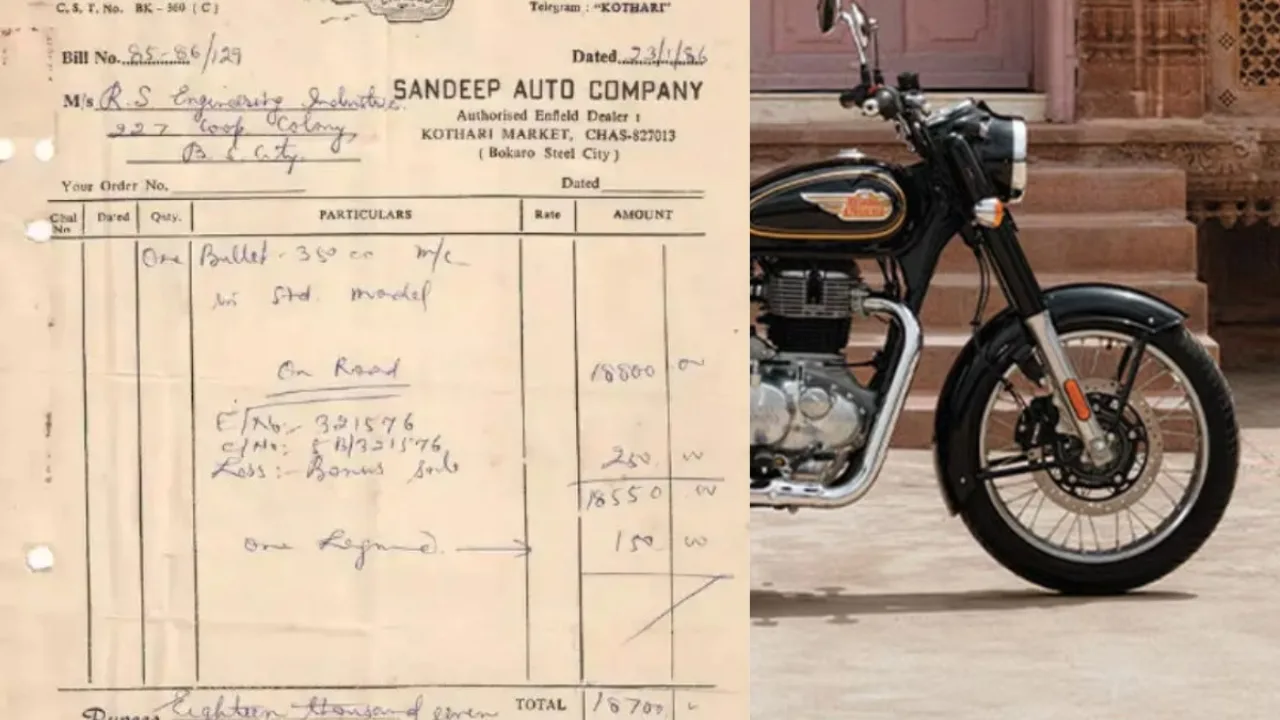 C. S. T. No. BK - 360 ( C )
Telegram : "KOTHARI"
Bill No. 85-86/129
Dated 23/1/86
M/s R.S Engineering Industries.
SANDEEP AUTO COMPANY
227 Coop Colony,
Authorised Enfield Dealer :
B. S. City.
KOTHARI MARKET, CHAS-827013
( Bokaro Steel City )
Your Order No.
Dated
Chal No. Dated Qnty. PARTICULARS Rate AMOUNT
One Bullet - 350 cc m/c
in Std. model
On Road 18800 00
E/No:- 321576
C/No:- 5B/321576
Less:- Bonus 250 00
18550 00
One Legguard. 150 00
Rupees Eighteen thousand seven
TOTAL 18700